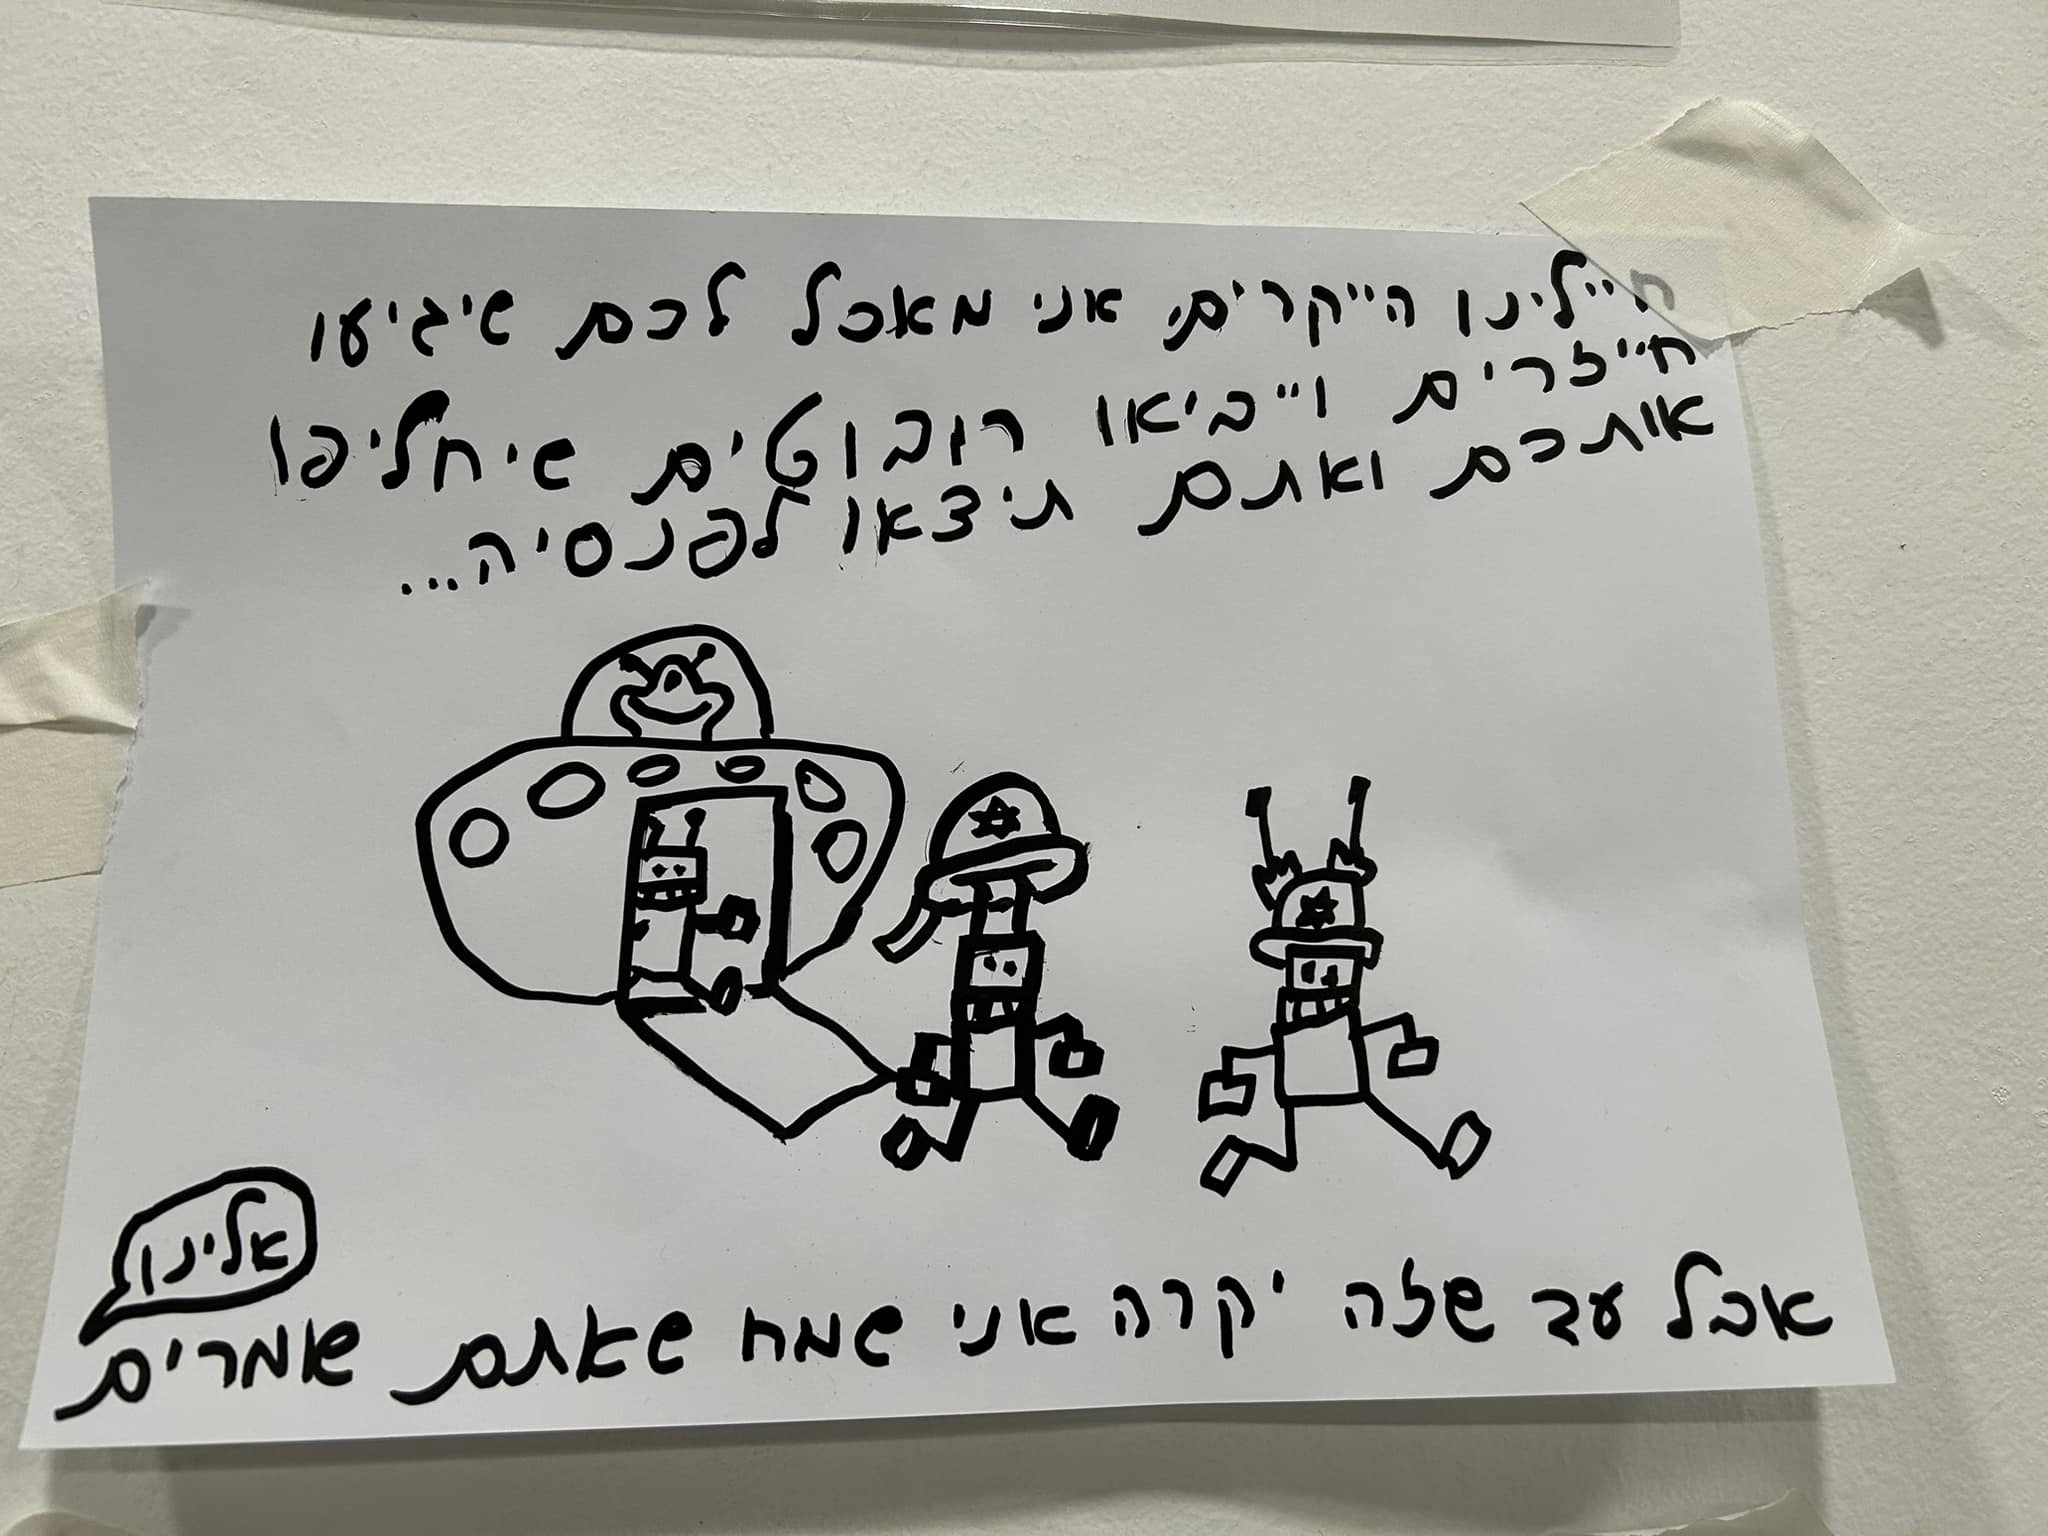 חיילינו הייקרים, אני מאכל לכם שיגיעו
חייזרים וייביאו רובוטים שיחליפו
אותכם ואתם תיצאו לפנסיה...
אבל עד שזה יקרה אני שמח שאתם שומרים
אלינו